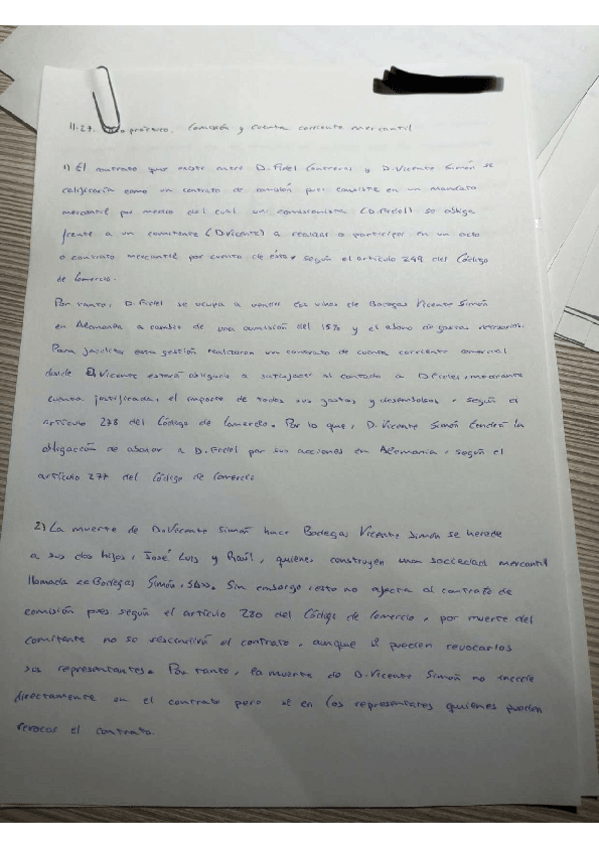 11.27. práctico. Comisión y Cuenta corriente mercantil
1) El contrato que existe entre D. Fidel Contreras y D. Vicente Simón se
calificaría como un contrato de comisión pues consiste en un mandato
mercantil por medio del cual un comisionista (D. Fidel) se obliga
frente a un comitente (D Vicente) a realizar o participar en un acto
o contrato mercantil por cuenta de éste, según el artículo 244 del Código
de Comercio.
Por tanto, D. Fidel se ocupa a vender los vinos de Bodegas Vicente Simón
en Alemania a cambio de una comisión del 15% y el abono de gastos necesarios.
Para facilitar esta gestión realizaron un contrato de cuenta corriente comercial
donde D. Vicente estará obligado a satisfacer al contado a D Fidel, mediante
cuenta justificada, el importe de todos sus gastos y desembolsos, según el
artículo 278 del Código de Comercio. Por lo que, D. Vicente Simón tendrá la
obligación de abonar a D. Fidel por sus acciones en Alemania, según el
artículo 277 del Código de Comercio
2) La muerte de D. Vicente Simón hace Bodegas Vicente Simón se herede
a sus dos hijos, José Luis y Raúl, quienes construyen una sociedad mercantil
llamada Bodegas Simón, Sin embargo esto no afecta al contrato de
comisión pues según el artículo 280 del Código de Comercio, por muerte del
comitente no se rescindirá el contrato, aunque sí pueden revocarlos
sus representantes. Por tanto, la muerte de D. Vicente Simón no incide
directamente en el contrato pero sí en los representantes quienes pueden
revocar el contrato.